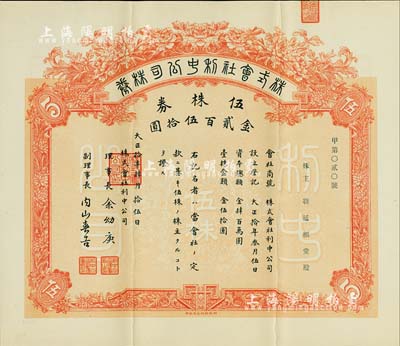 上海陽明拍賣
株式會社利中公司株券
伍株券
金貳百伍拾圓
甲第〇貳〇號
株主
會社商號 株式會社利中公司
設立登記 大正拾年叁月伍日
資本總額 金肆百萬圓
壹株金額 金伍拾圓
右記名者ハ當會社ノ定
款ヲ遵守シ伍株ノ株主タルコト
ヲ證ス
大正拾年肆月拾伍日
株式會社利中公司
理事長 余幼庚
副理事長 内山壽吉
伍
5
伍
5
上海陽明拍賣